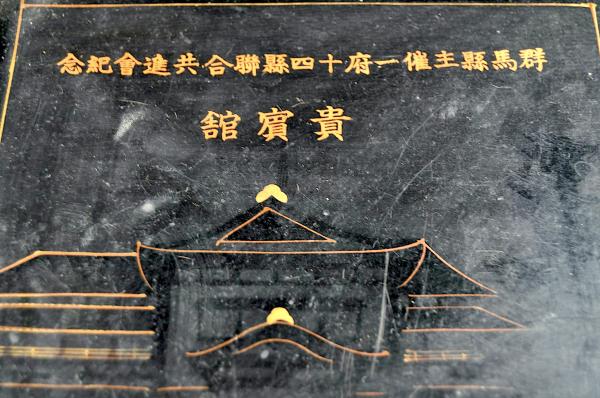 群馬縣主催一府十四縣聯合共進會紀念
貴賓舘